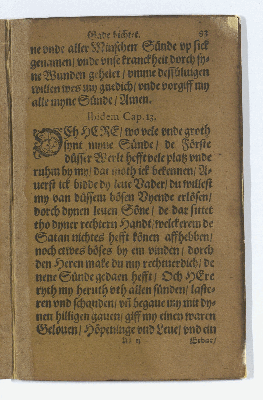 Gade bichtet. 63
ne vnde aller Minschen Sünde vp sick
genamen / vnde vnse kranckheit dorch sy-
ne Wunden geheilet / vmme desßüluigen
willen wes my gnedich / vnde vorgiff my
alle myne Sünde / Amen.
Eodem Cap. 13.
OCh HERE / wo vele vnde groth
synt myne Sünde / de Förste
düsser Werlt hefft vele platz vnde
ruhen by my / dat moth ick bekennen / A-
uerst ick bidde dy leue Vader / du willest
my van düssem bösen Vyende erlösen /
dorch dynen leuen Söne / de dar sittet
tho dyner rechtern Handt / welckerem de
Satan nichtes hefft könen affhebben /
noch etwes böses by ein vinden / dorch
den Heren make du my rechtuerdich / de
nene Sünde gedaen hefft / Och HEre
ryth my heruth vth allen sünden / laste-
ren vnd schanden / vñ begaue my mit dy-
nen hilligen gauen / giff my einen waren
Gelouen / Höpeninge vnd Leue / vnd ein